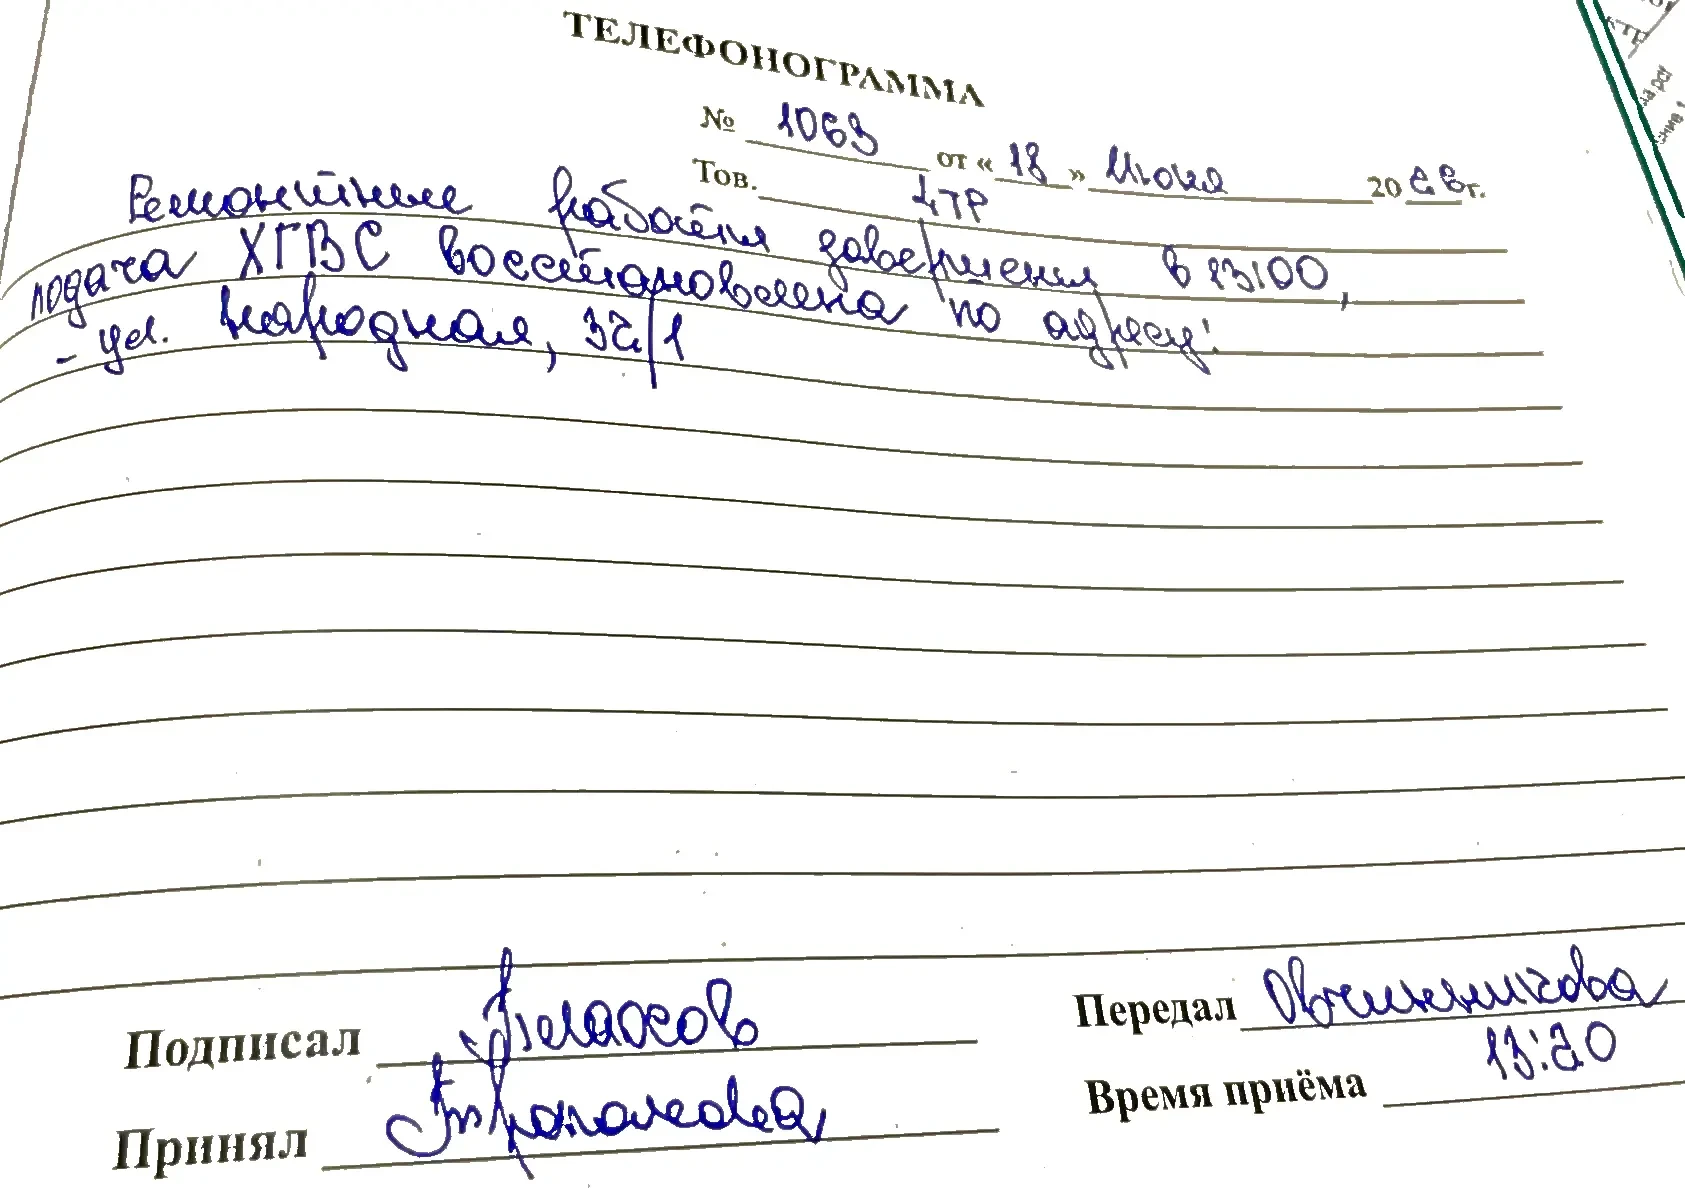 ТЕЛЕФОНОГРАММА
№ 1063 от « 18 » Июня 20 г.
Тов. ЦТР
Ремонтные работы завершены в 13:00,
подача ХГВС восстановлена по адресу:
- ул. Народная, 32/1
Подписал Власов
Передал Овчинникова
Принял
Время приёма 13:20